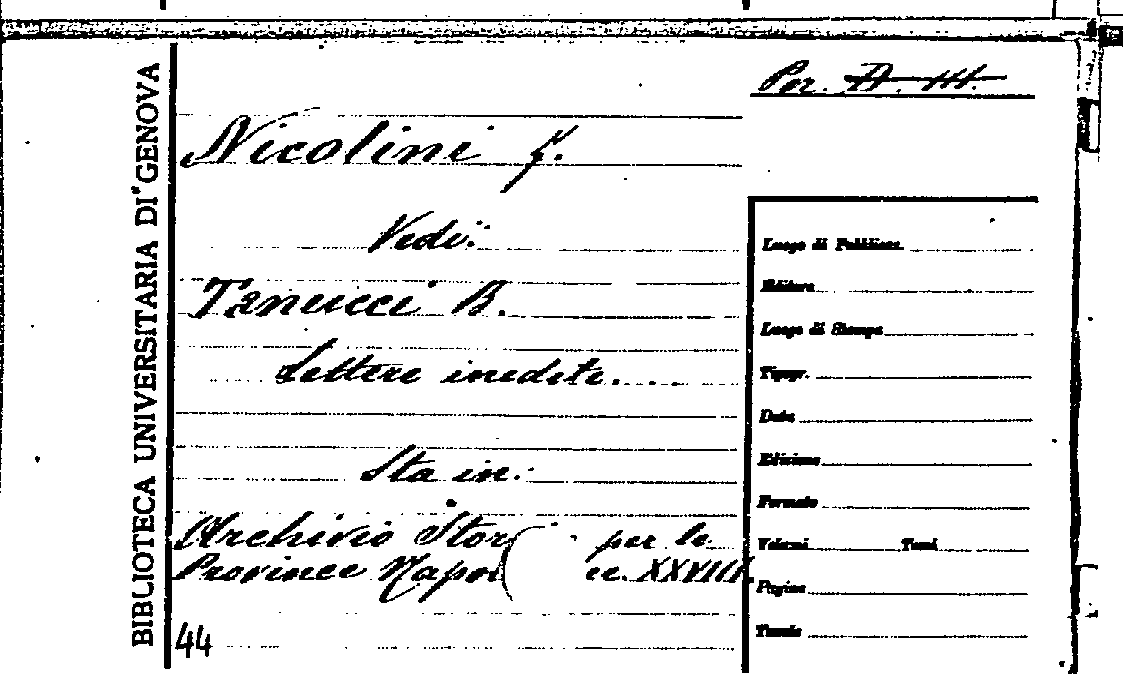 BIBLIOTECA UNIVERSITARIA DI GENOVA
Per. A. III.
Nicolini f.
Vedi:
Tanucci B.
Lettere inedite....
Sta in:
Archivio Stor per le
Province Napol XXVIII
44
Luogo di Pubblicaz.
Editore
Luogo di Stampa
Tipogr.
Data
Edizione
Formato
Volumi Tomi
Pagine
Tavole